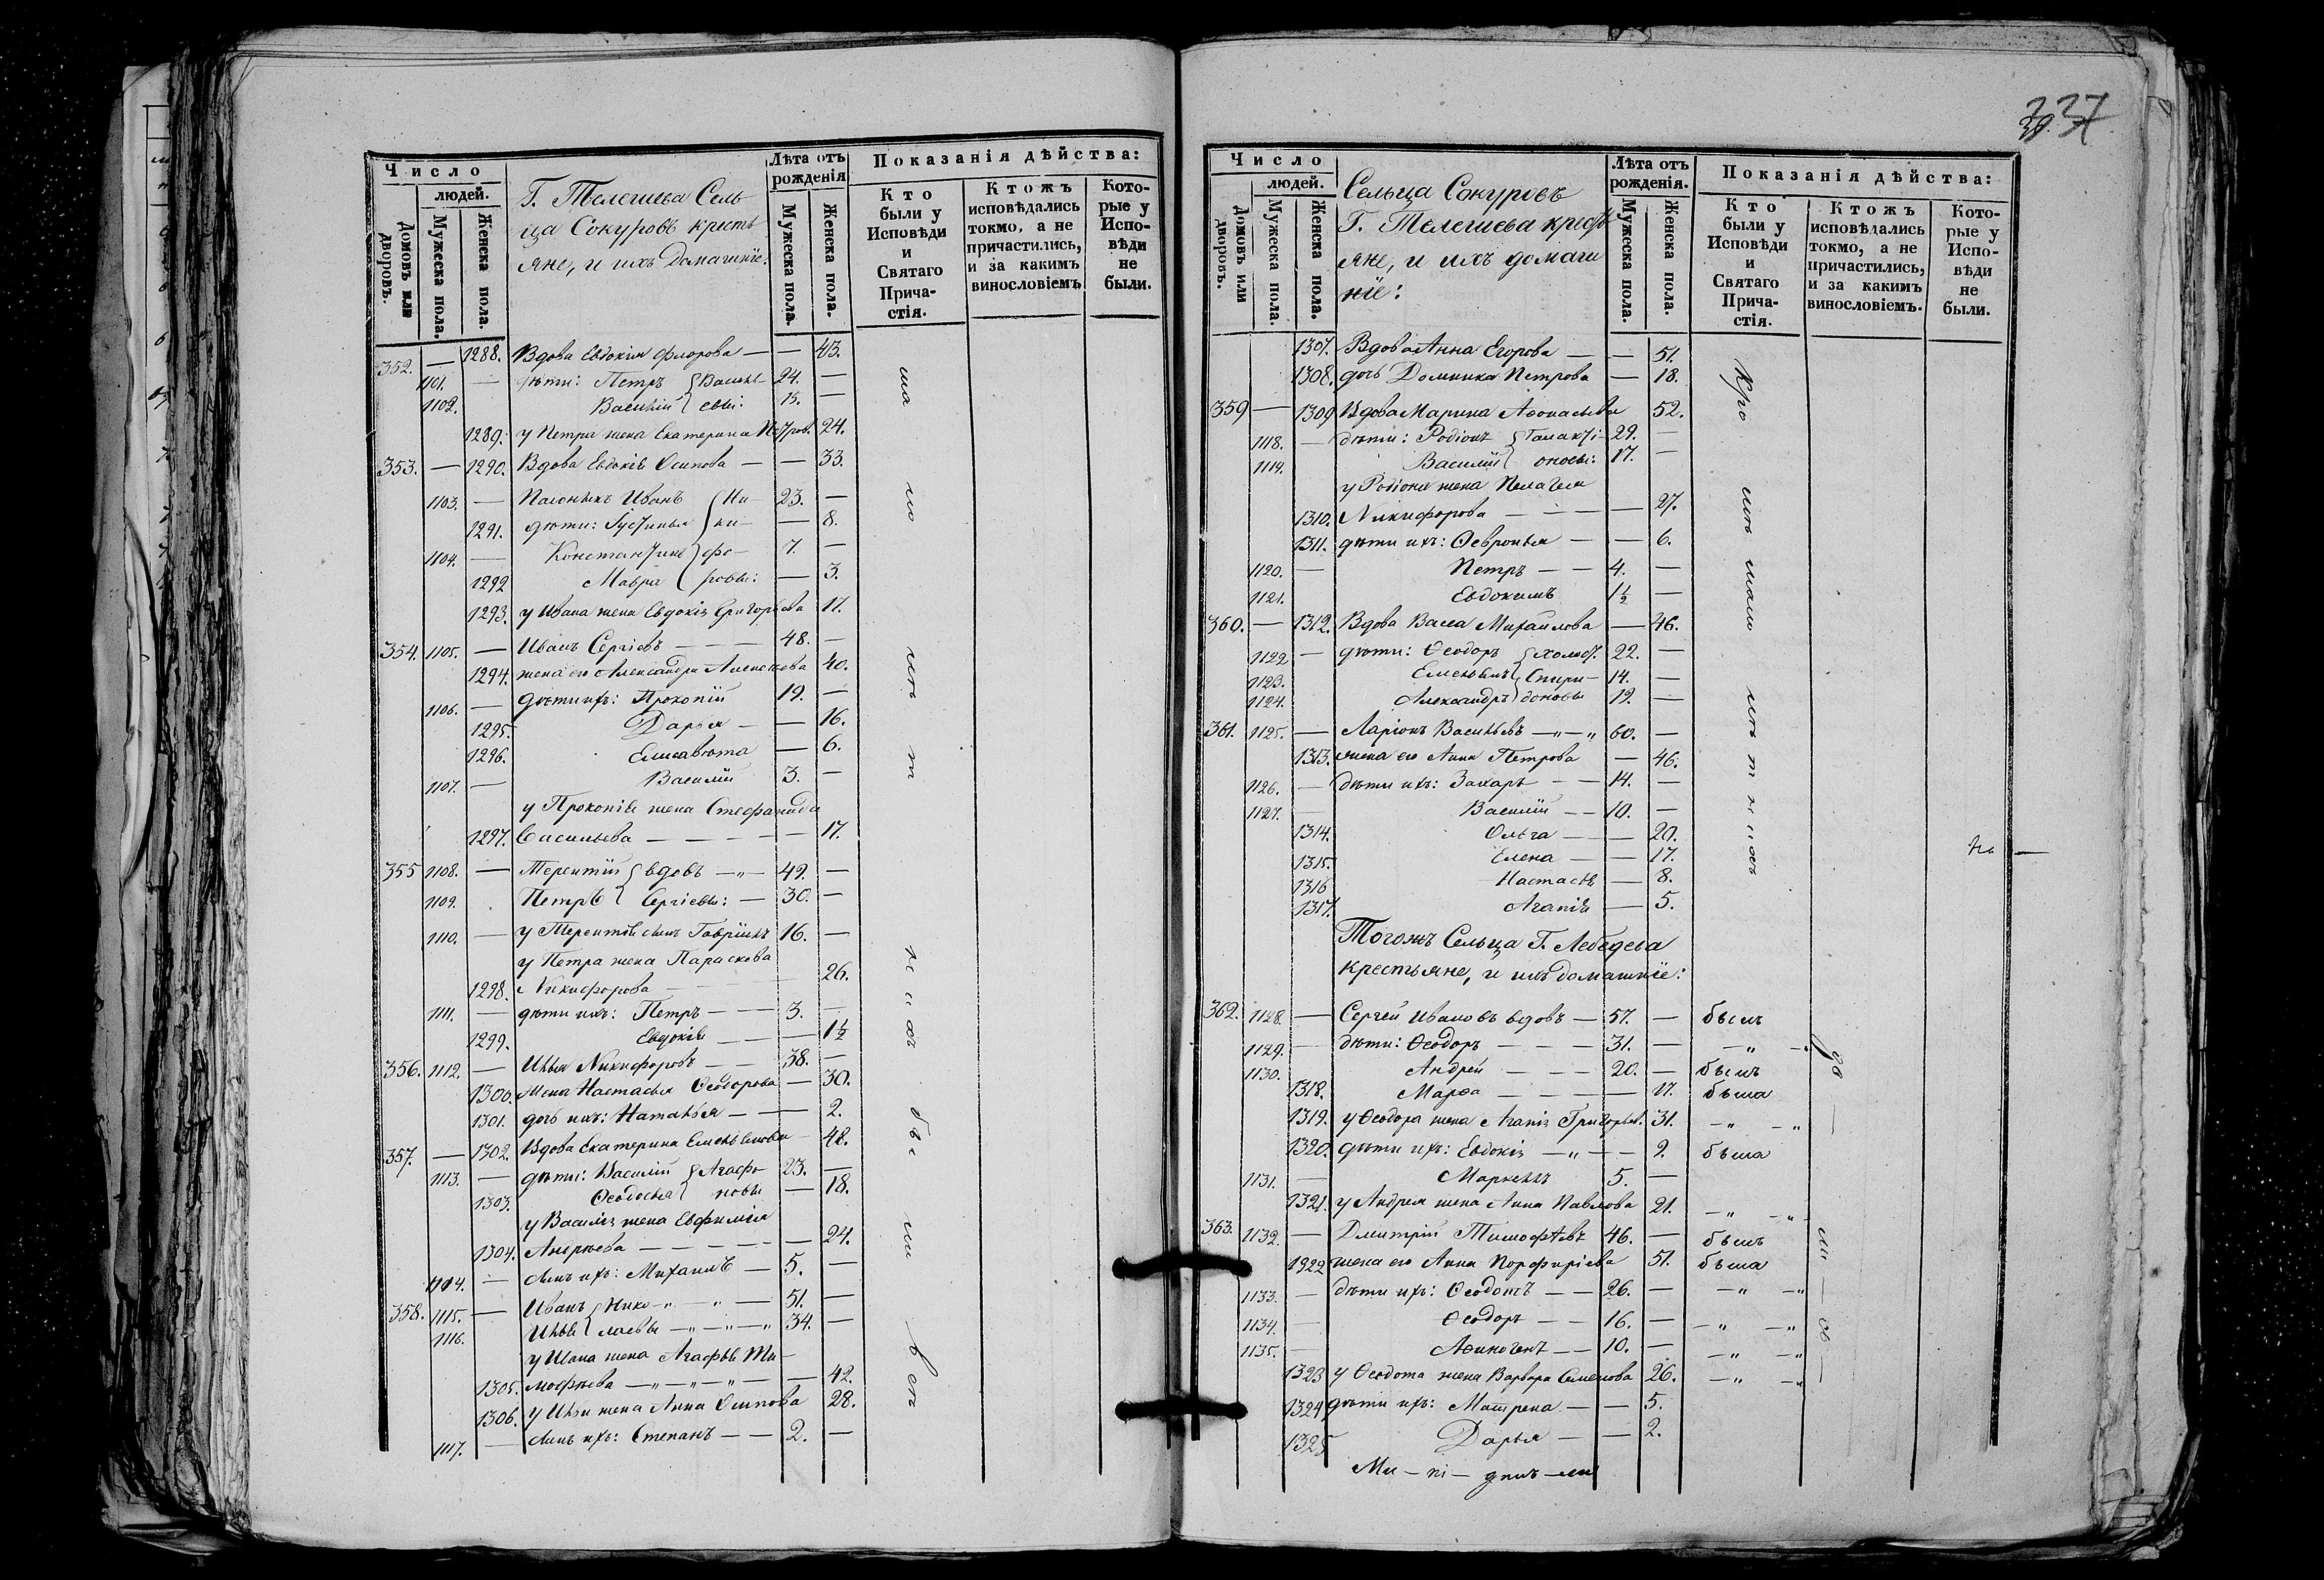 337
Число
людей.
Домовъ или дворовъ.
Мужеска пола.
Женска пола.
Г. Телегиева Сель
ца Сокуровъ кресть
яне, и ихъ домашніе:
Лѣта отъ
рожденія
Мужеска пола.
Женска пола.
Показанія дѣйства:
Кто
были у
Исповѣди
и
Святаго
Прича-
стія.
Ктожъ
исповѣдались
токмо, а не
причастились,
и за какимъ
винословіемъ
Кото-
рые у
Испо-
вѣди
не
были.
352. — 1288. Вдова Евдокия Флорова — — 43.
1101. — дѣти: Петръ Василь- 24. —
1102. Василій евы: 15. —
1289. у Петра жена Екатерина Петров. 24.
353. — 1290. Вдова Евдокія Осипова — — 33.
1103. — Пасынокъ Иванъ Ни- 23. —
1291. дѣти: Іустинья ки- — 8.
1104. — Константинъ фо- 7. —
1292 Мавра ровы: — 3.
1293. у Ивана жена Евдокія Григорьева 17.
354. 1105. — Иванъ Сергіевъ — 48. —
1294. жена его Александра Алексѣева 40.
1106. — дѣти ихъ: Прокопій 19. —
1295. Дарья — — 16.
1296. Елисавета — 6.
1107. — Василій 3. —
у Прокопія жена Стефанида
1297. Васильева — — 17.
355 1108. — Терентій вдовъ 49. —
1109. Петръ Сергіевы: — 30. —
1110. — у Терентія сынъ Гавріилъ 16. —
у Петра жена Параскова
1298. Никифорова — 26.
1111. — дѣти ихъ: Петръ — — 3. —
1299. Евдокія — — 1½
356. 1112. — Илья Никифоровъ — 38. —
1300. Жена Настасья Ѳеодорова — 30.
1301. дочь ихъ: Наталья — — 2.
357. — 1302. Вдова Екатерина Емельянова 48.
1113. — дѣти: Василій Агафо- 23. —
1303. Ѳеодосья новы — 18.
у Василія жена Евфимія
1304. Андреева — — 24.
1114. — сынъ ихъ: Михаилъ — 5. —
358. 1115. — Иванъ Нико- 51. —
1116. Илья лаевы 34. —
у Ивана жена Агафья Ти-
1305. мофѣева — 42.
1306. у Ильи жена Анна Осипова 28.
1117. — сынъ ихъ: Степанъ — — 2. —
Число
людей.
Домовъ или дворовъ.
Мужеска пола.
Женска пола.
Сельца Сокуровъ
Г. Телегиева кресть
яне, и ихъ домаш
ніе:
Лѣта отъ
рожденія.
Мужеска пола.
Женска пола.
Показанія дѣйства:
Кто
были у
Исповѣди
и
Святаго
Прича-
стія.
Ктожъ
исповѣдались
токмо, а не
причастились,
и за какимъ
винословіемъ.
Кото-
рые у
Испо-
вѣди
не
были.
1307. Вдова Анна Егорова — — 51.
1308. дочь Домника Петрова — 18.
359 — 1309 Вдова Марина Аѳонасьева 52.
1118. — дѣти: Родіонъ Галакті- 29. —
1119. Василій оновы: 17. —
у Родіона жена Пелагея
1310. Никифорова — — 27.
1311. дѣти ихъ: Ѳевронья — — 6.
1120. — Петръ — — 4. —
1121. Евдокимъ 1½ —
360. — 1312. Вдова Васса Михайлова — 46.
1122 — дѣти: Ѳеодоръ холост. 22. —
1123. Емельянъ Спири- 14. —
1124. Александръ доновы 19. —
361. 1125. — Ларіонъ Васильевъ 60. —
1313. жена его Анна Петрова — 46.
1126. — дѣти ихъ: Захаръ — — 14. —
1127. Василій — — 10. —
1314. Ольга — — 20.
1315. Елена — — 17.
1316 Настасья — 8.
1317. Агапія — 5.
Тогожъ Сельца Г. Лебедева
Крестьяне, и ихъ домашніе:
362. 1128. — Сергей Ивановъ вдовъ — 57. — былъ
1129. — дѣти: Ѳеодоръ — — 31. — — „ —
1130. Андрей — — 20. — былъ
1318. Марѳа — — 17. была
1319. у Ѳеодора жена Агапія Григорьев. 31. — „ — „
1320. дѣти ихъ: Евдокія — „ — — 9. была
1131. — Маркелъ 5. —
1321. у Андрея жена Анна Павлова 21. — „ — „
363. 1132. — Дмитрій Тимофѣевъ 46. — былъ
1322 жена его Анна Порфиріева 51. была
1133. — дѣти ихъ: Ѳеодотъ — — 26. — — „ — „
1134. — Ѳеодоръ — — 16. — — „ — „
1135. — Аѳиногенъ — — 10. — — „ — „
1323 у Ѳеодота жена Варвара Семенова 26. — „ — „
1324 дѣти ихъ: Матрена — — 5.
1325 Дарья — — 2.